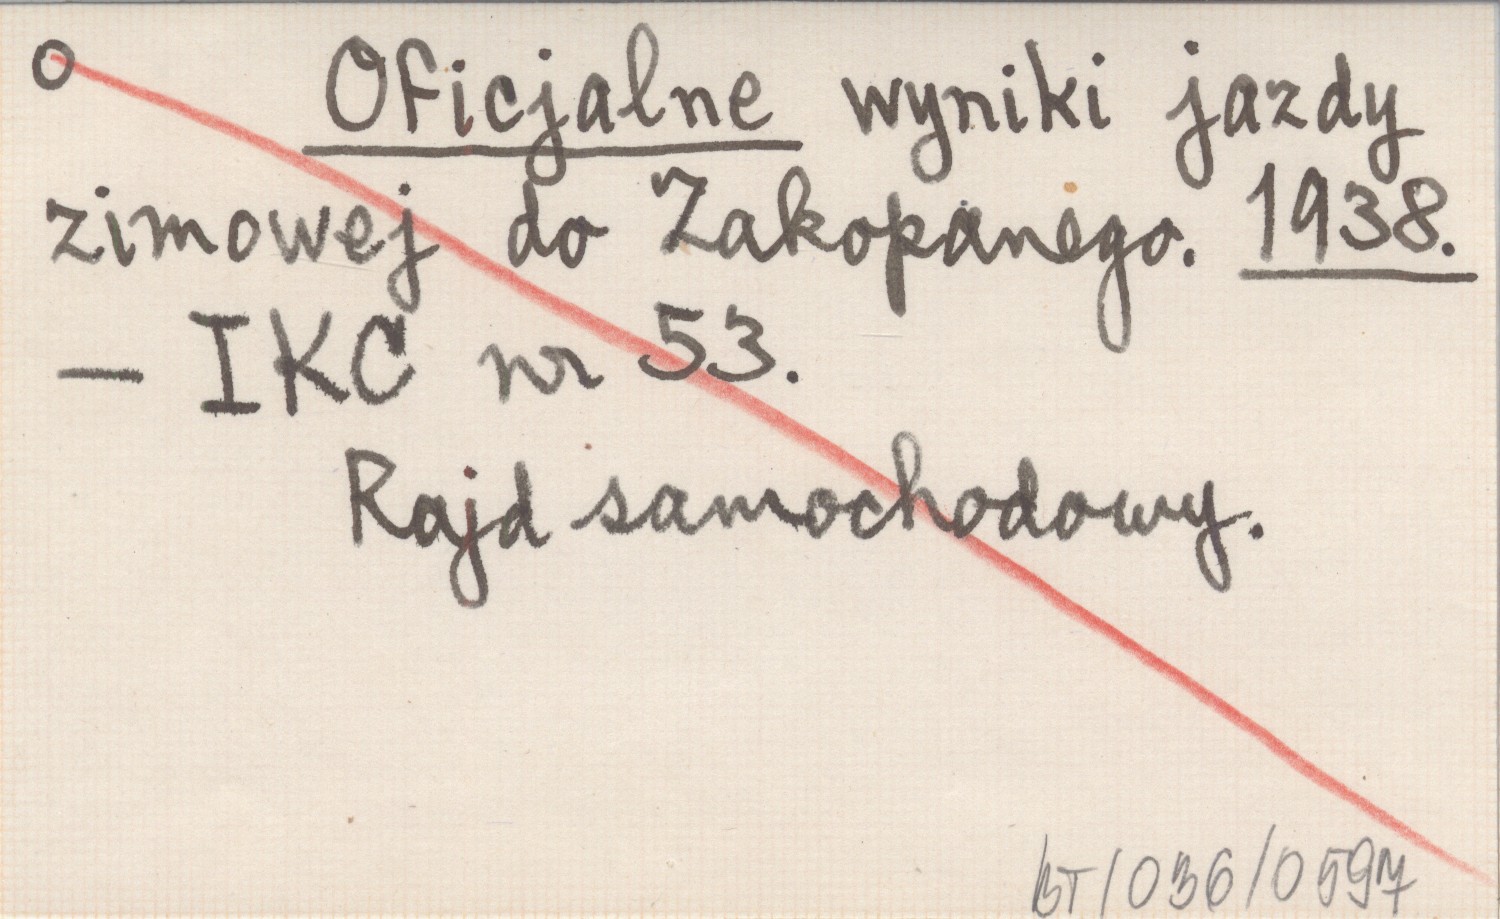 O
Oficjalne wyniki jazdy
zimowej do Zakopanego. 1938.
— IKC nr 53.
Rajd samochodowy.
BT/036/0597